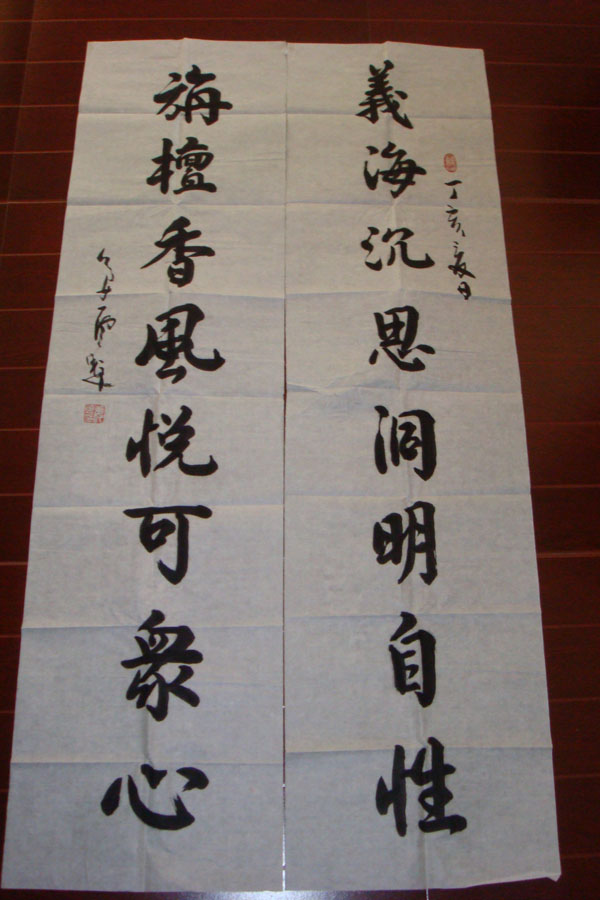 義海沉思洞明自性
丁亥夏日
旃檀香風悦可衆心